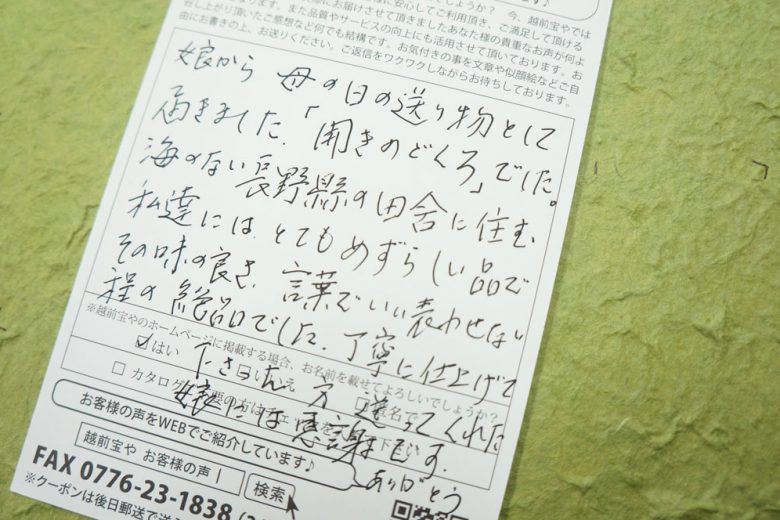 に安心してご利用頂き、ご満足して頂ける
お届けさせて頂きましたあなた様の貴重なお声が何よ
また品質やサービスの向上にも活用させて頂いております。お
召し上がり頂いたご感想など何でも結構です。お気付きの事を文章や似顔絵などご自
由にお書きの上、お送りください。ご返信をワクワクしながらお待ちしております。
娘から 母の日の送り物として
届きました。「開きのどぐろ」でした。
海のない長野縣の田舎に住む
私達には、とてもめずらしい品で
その味の良さ、言葉でいい表わせない
程の絶品でした。丁寧に仕上げて
下さった方、送ってくれた
娘には感謝です。
ありがとう
※越前宝やのホームページに掲載する場合、お名前を載せてよろしいでしょうか?
☑はい □いいえ □匿名で
□ カタログ
お客様の声をWEBでご紹介しています♪
越前宝や お客様の声| 検索
FAX 0776-23-1838
※クーポンは後日郵送で